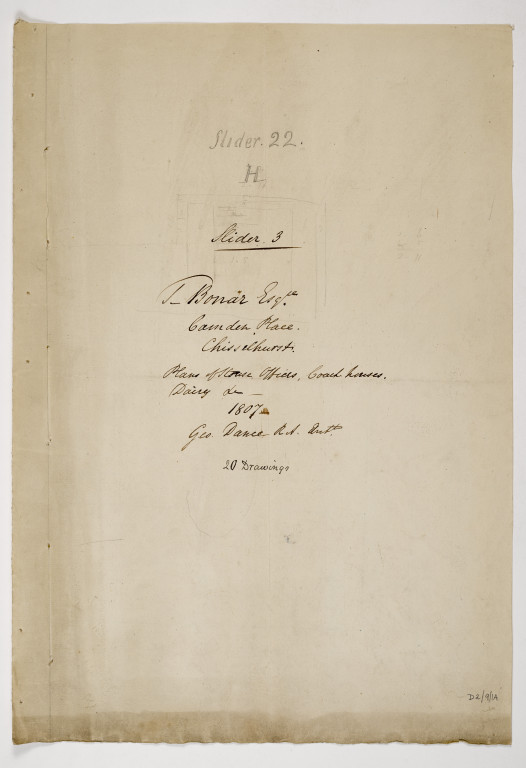 Slider. 22.
H
Slider 3
T_ Bonar Esqre
Camden Place.
Chisselhurst.
Plans of House Offices, Coach houses.
Dairy &c —
1807
Geo. Dance R.A. Archt.
20 Drawings
D2/9/1A